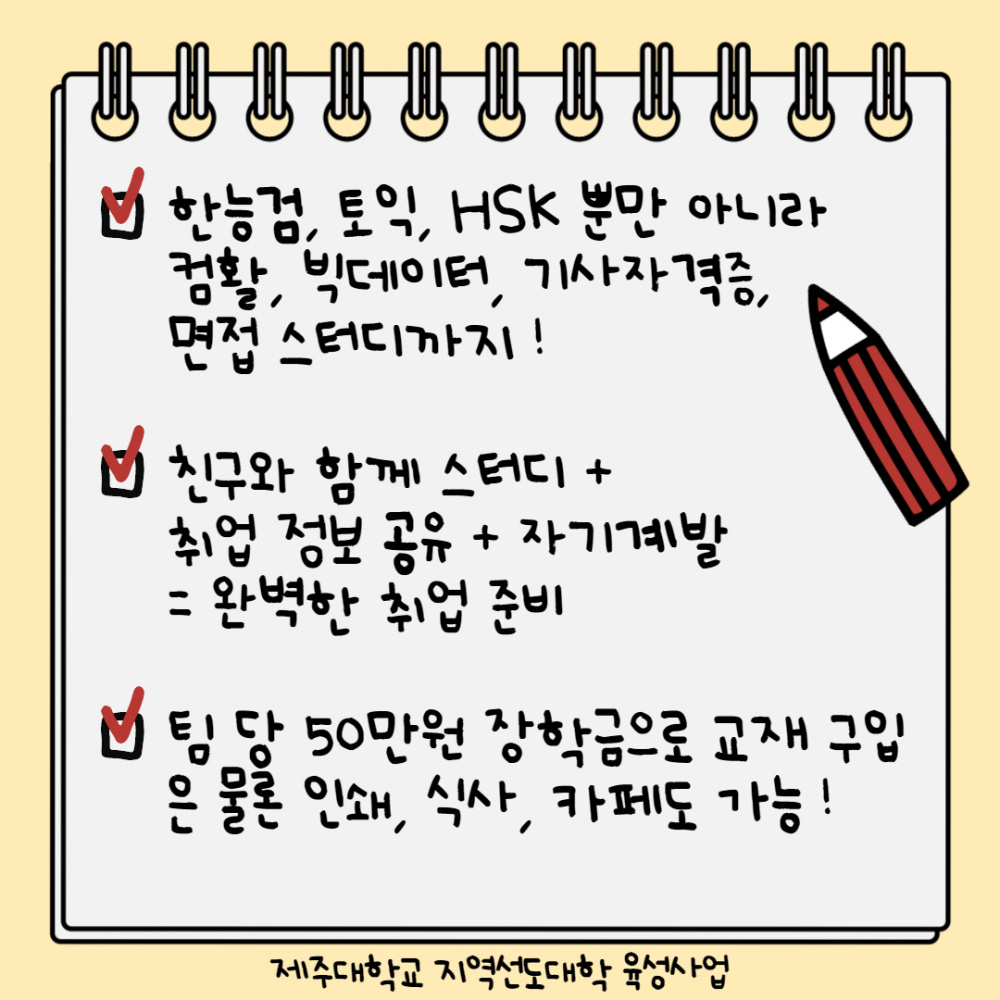 한능검, 토익, HSK 뿐만 아니라
컴활, 빅데이터, 기사자격증,
면접 스터디까지!
친구와 함께 스터디 +
취업 정보 공유 + 자기계발
= 완벽한 취업 준비
팀 당 50만원 장학금으로 교재 구입
은 물론 인쇄, 식사, 카페도 가능!
제주대학교 지역선도대학 육성사업